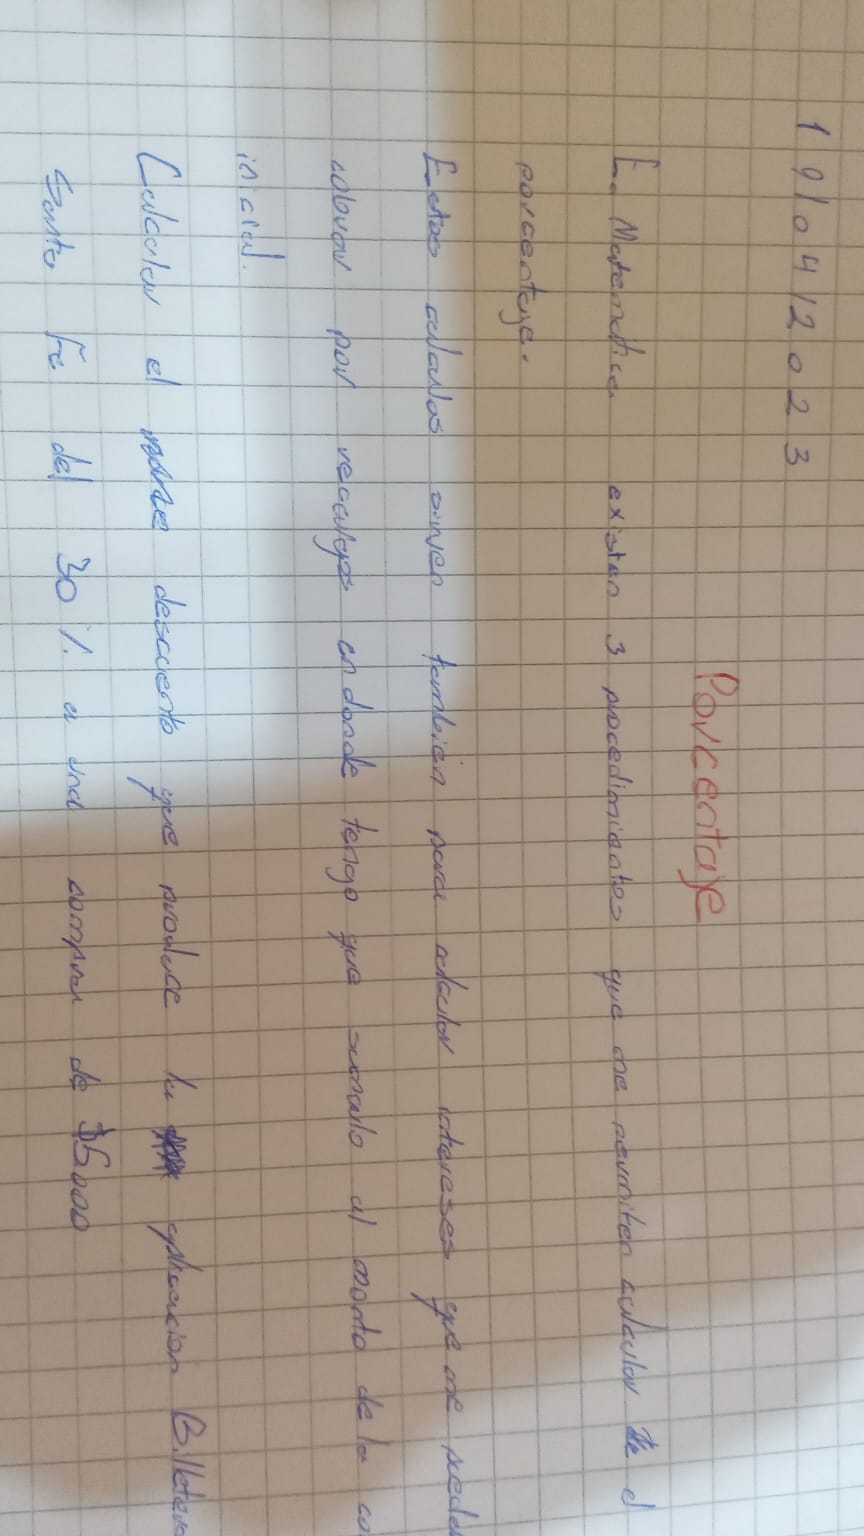 19/04/2023
Porcentaje
E. Matematica existen 3 procedimientos que me permiten calcular el
porcentaje.
Estos calculos sirven también para calcular intereses que me puede
cobrar por recargos en donde tengo que sumarlo al monto de la co
inicial.
Calcular el descuento que produce la aplicacion Billetera
Santa Fe del 30% a una compra de $5000